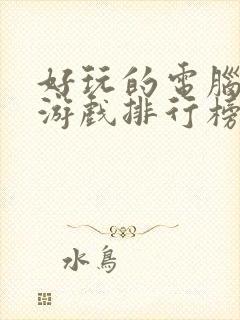 好玩的電腦
游戲排行榜
水鳥